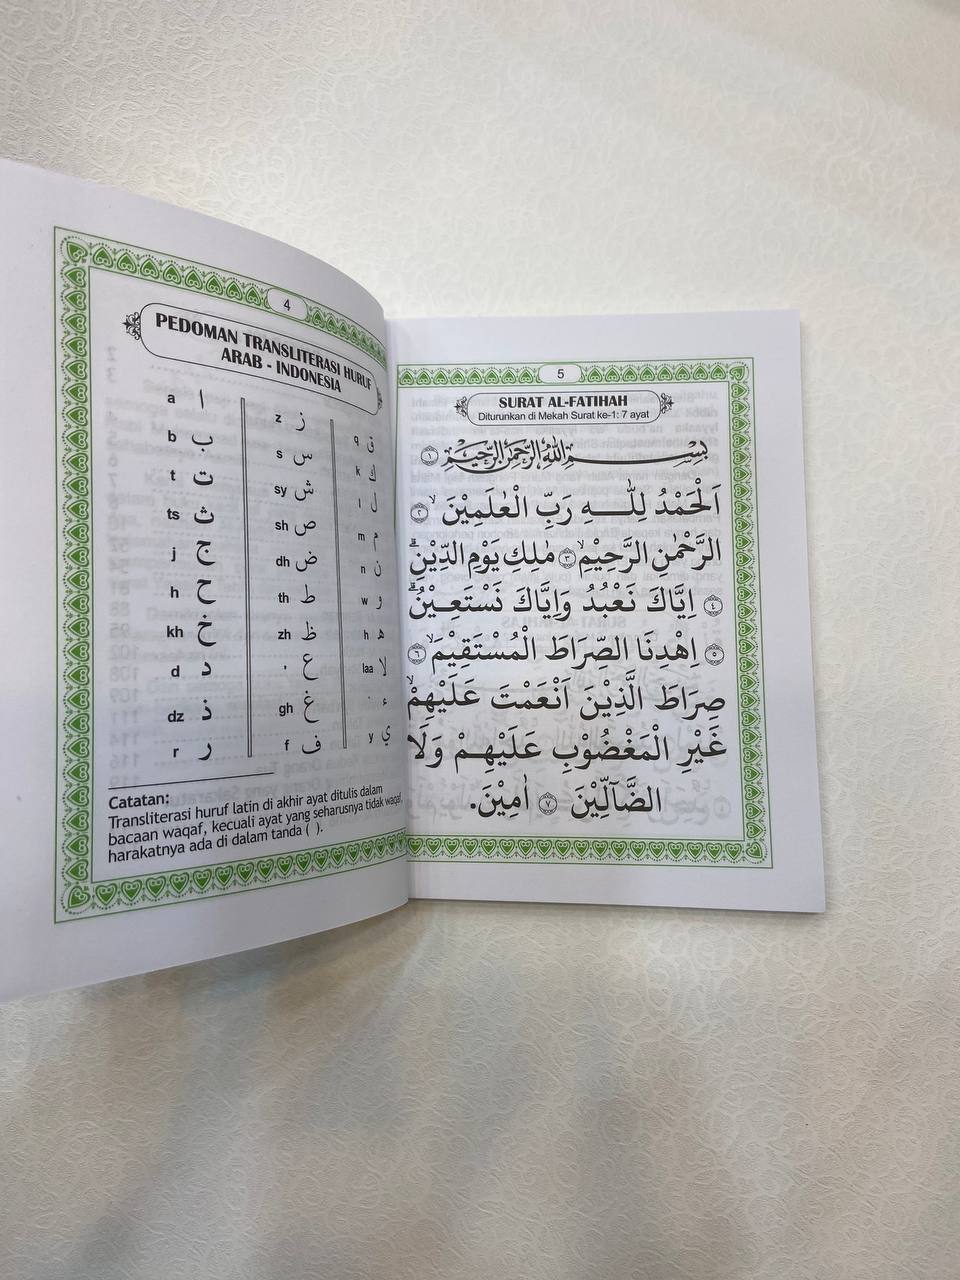 4
PEDOMAN TRANSLITERASI HURUF
ARAB - INDONESIA
a ا
b ب
t ت
ts ث
j ج
h ح
kh خ
d د
dz ذ
r ر
z ز
s س
sy ش
sh ص
dh ض
th ط
zh ظ
' ع
gh غ
f ف
q ق
k ك
l ل
m م
n ن
w و
h ه
laa لا
' ء
y ي
Catatan:
Transliterasi huruf latin di akhir ayat ditulis dalam
bacaan waqaf, kecuali ayat yang seharusnya tidak waqaf,
harakatnya ada di dalam tanda ( ).
5
SURAT AL-FATIHAH
Diturunkan di Mekah Surat ke-1: 7 ayat
بِسْمِ اللّٰهِ الرَّحْمٰنِ الرَّحِيْمِ ١
اَلْحَمْدُ لِلّٰهِ رَبِّ الْعٰلَمِيْنَۙ ٢
الرَّحْمٰنِ الرَّحِيْمِۙ ٣ مٰلِكِ يَوْمِ الدِّيْنِۗ
٤ اِيَّاكَ نَعْبُدُ وَاِيَّاكَ نَسْتَعِيْنُۗ
٥ اِهْدِنَا الصِّرَاطَ الْمُسْتَقِيْمَۙ ٦
صِرَاطَ الَّذِيْنَ اَنْعَمْتَ عَلَيْهِمْۙ
غَيْرِ الْمَغْضُوْبِ عَلَيْهِمْ وَلَا
الضَّاۤلِّيْنَ ٧ اٰمِيْنَ.